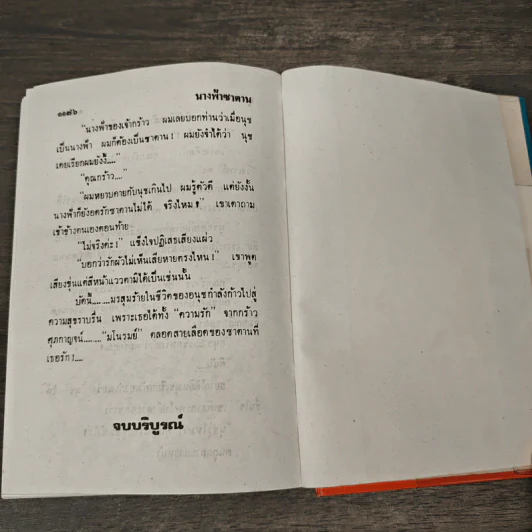 นางฟ้าซาตาน
๑๑๗๖
“นางฟ้าของเจ้ากร้าว ผมเลยบอกท่านว่าเมื่อนุช
เป็นนางฟ้า ผมก็ต้องเป็นซาตาน! ผมยังจำได้ว่า นุช
เคยเรียกผมยังงี้....”
“คุณกร้าว....”
“ผมหยาบคายกับนุชเกินไป ผมรู้ตัวดี แต่ยังงั้น
นางฟ้าก็ยังอดรักซาตานไม่ได้ จริงไหม?” เขาเดาถาม
เข้าข้างตนเองตอนท้าย
“ไม่จริงค่ะ!” แข็งใจปฏิเสธเสียงแผ่ว
“บอกว่ารักผัวไม่เห็นเสียหายตรงไหน!” เขาพูด
เสียงขุ่นแต่สีหน้าแววตามิได้เป็นเช่นนั้น
บัดนี้........มรสุมร้ายในชีวิตของอนุชกำลังก้าวไปสู่
ความสุขราบรื่น เพราะเธอได้ทั้ง “ความรัก” จากกร้าว
ศุภกาญจน์........“มโนรมย์” ตลอดสายเลือดของซาตานที่
เธอรัก!....
จบบริบูรณ์